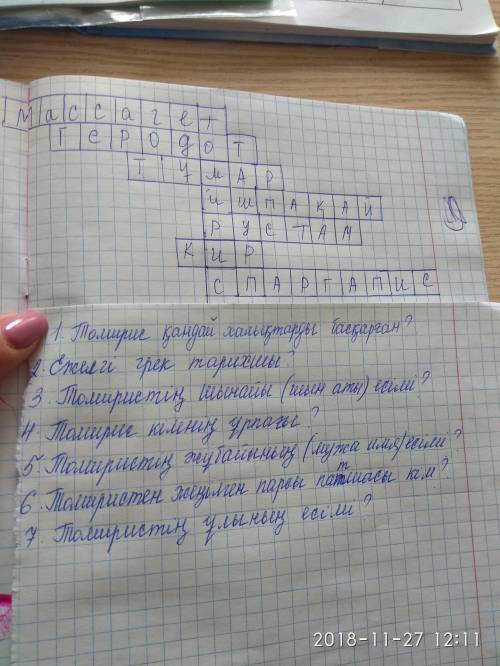 Массагет
Геродот
Тумар
Ишпақай
Рустам
Кир
Спаргапис
1. Томирис қандай халықтарды басқарған?
2. Ежелгі грек тарихшы?
3. Томиристің шынайы (шын аты) есімі?
4 Томирис кімнің ұрпағы?
5. Томиристің жұбайының (мужа имя) есімі?
6. Томиристен жеңілген парсы патшасы кім?
7. Томиристің ұлының есімі?
2018-11-27 12:11